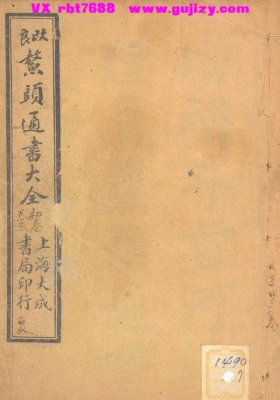 VX_rbt7688 www.gujizy.com
改良
鰲頭通書大全
上海大成
書局印行
1490
7